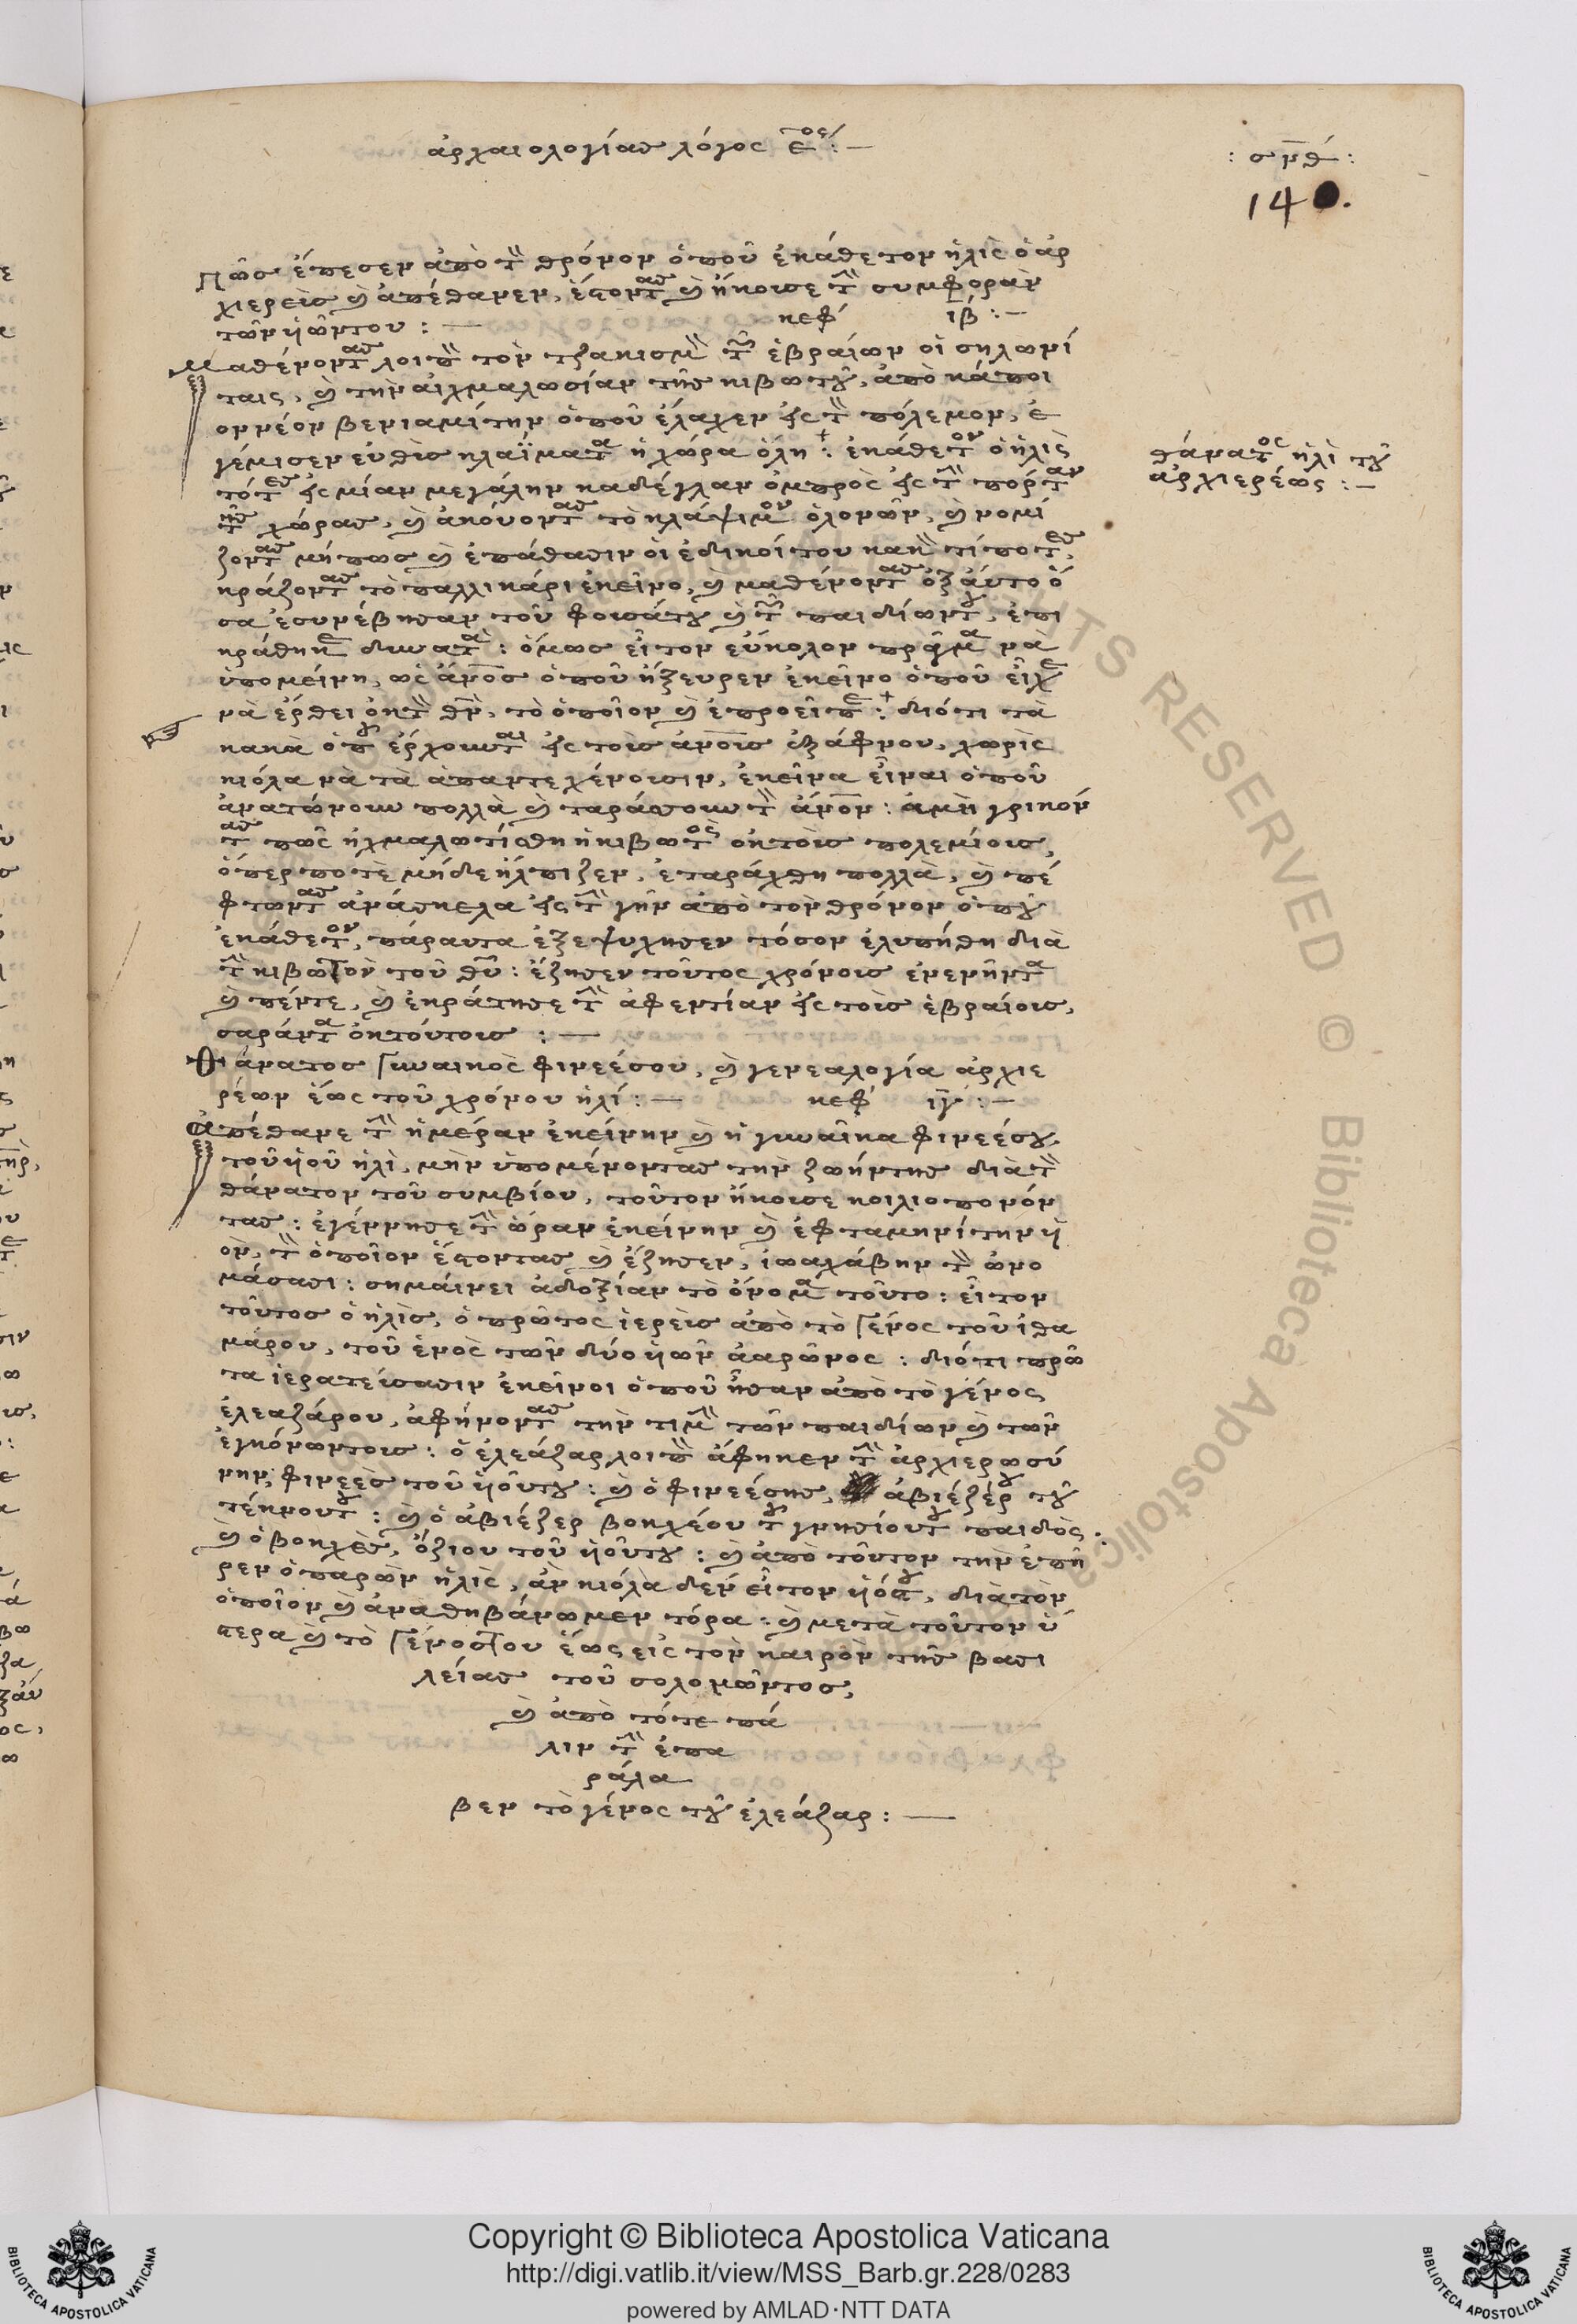 ἀρχαιολογίας λόγος ε̅ος:—
: σμθ :
140.
Πῶς ἔπεσεν ἀπὸ τὸν θρόνον ὁποῦ ἐκάθετον ἠλὶς ὁ ἀρ
χιερεὶς καὶ ἀπέθανεν, ἔστοντας καὶ ἤκουσε τὴν συμφορὰν
τῶν ὑῶντου :— κεφ ιβ :—
Μαθένοντας λοιπὸν τὸν τζακισμὸν τῶν ἑβραίων οἱ σηλωνί
ταις, καὶ τὴν αἰχμαλωσίαν τῆς κιβωτοῦ, ἀπὸ κάποι
ον νέον βενιαμίτην ὁποῦ ἔλαχεν εἰς τὸν πόλεμον, ἐ
γέμισεν εὐθὶς κλαΐματα ἡ χώρα ὅλη : ἐκάθετον ὁ ἠλὶς
τότες εἰς μίαν μεγάλην καδέγλαν ὀμπρὸς εἰς τὴν πόρταν
τῆς χώρας, καὶ ἀκούοντας τὸ κλάψιμον ὁλονῶν, καὶ νομί
ζοντας μήπως καὶ ἐπάθασιν οἱ ἐδικοί του κακὸν τίποτες,
κράζοντας τὸ παλλικάρι ἐκεῖνο, καὶ μαθένοντας ὀξ αὐτο ὅ
σα ἐσυνέβησαν τοῦ φουσάτου καὶ τῶν παιδίων του, ἐπι
κράθηκε δυνατὰ : ὅμως εἶτον εὔκολον πρᾶγμα νὰ
ὑπομείνη, ὡς ἄνος ὁποῦ ἤξευρεν ἐκεῖνο ὁποῦ εἶχε
νὰ ἔρθει ὀκ τὸν θν, τὸ ὁποῖον καὶ ἐπροεῖπε : διότι τὰ
κακὰ ὁποῦ ἔρχουνται εἰς τοὺς ἀνους ἐξάφνου, χωρὶς
κιόλα νὰ τὰ ἀπαντεχένουσιν, ἐκεῖνα εἶναι ὁποῦ
ἀνατώνουν πολλὰ καὶ ταράσσουν τὸν ἄνον : ἀμὴ γρικόν
τας πῶς ἠχμαλωτίσθη ἡ κιβωτὸς ὀκ τοὺς πολεμίους,
ὅπερ ποτὲ μήδε ἤλπιζεν, ἐταράχθη πολλὰ, καὶ πέ
φτωντας ἀνάσκελα εἰς τὴν γῆν ἀπὸ τὸν θρόνον ὁποῦ
ἐκάθετον, πάραυτα ἐξεψύχησεν τόσον ἐλυπήθη διὰ
τὴν κιβωτὸν τοῦ θῦ : ἔζησεν τοῦτος χρόνους ἐνενῆντα
καὶ πέντε, καὶ ἐκράτησε τὴν ἀφεντίαν εἰς τοὺς ἑβραίους,
σαράντα ὀκ τούτους :—
Θάνατος γυναικὸς φινεέσου, καὶ γενεαλογία ἀρχιε
ρέων ἕως τοῦ χρόνου ἠλί :— κεφ ιγ :—
Ἀπέθανε τὴν ἡμέραν ἐκείνην καὶ ἡ γυναῖκα φινεέσου,
τοῦ ὑοῦ ἠλὶ, μὴν ὑπομένοντας τὴν ζωήν της διὰ τὸν
θάνατον τοῦ συμβίου, τοῦτον ἤκουσε κοιλιοπονόν
τας : ἐγέννησε τὴν ὥραν ἐκείνην καὶ ἐφταμηνίτην ὑ
ὸν, τὸν ὁποῖον ἔστοντας καὶ ἔζησεν, ἰωαχάβην τὸν ὠνο
μάσασι : σημαίνει ἀδοξίαν τὸ ὄνομα τοῦτο : εἶτον
τοῦτος ὁ ἠλὶς, ὁ πρῶτος ἱερεὶς ἀπὸ τὸ γένος τοῦ ἰθα
μάρου, τοῦ ἑνὸς τῶν δύο ὑῶν ἀαρῶνος : διότι πρῶ
τα ἱερατεύσασιν ἐκεῖνοι ὁποῦ ἦσαν ἀπὸ τὸ γένος
ἐλεαζάρου, ἀφήνοντας τὴν τιμὴν τῶν παιδίων καὶ τῶν
ἐγκόνωντους : ὁ ἐλεάζαρ λοιπὸν ἄφηκεν τὴν ἀρχιερωσύ
νην, φινεὲς τοῦ ὑοῦ του : καὶ ὁ φινεέσης, ἀβιέζέρου τοῦ
τέκνου του : καὶ ὁ ἀβιέζερ βοκχέου τοῦ γνησίου του παιδὸς :
καὶ ὁ βοκχὲς, ὄζιου τοῦ ὑοῦ του : καὶ ἀπὸ τοῦτον τὴν ἐπῆ
ρεν ὁ παρὼν ἠλὶς, ἂν κιόλα δεν εἶτον ὑός του, διὰ τὸν
ὁποῖον καὶ ἀναθηβάνωμεν τόρα : καὶ μετὰ τοῦτον ὕ
στερα καὶ τὸ γένος του ἕως εἰς τὸν καιρὸν τῆς βασι
λείας τοῦ σολομῶντος,
καὶ ἀπὸ τότε πά
λιν τὴν ἐπα
ράλα
βεν τὸ γένος τοῦ ἐλεάζαρ :—
θάνατος ἠλὶ τοῦ
ἀρχιερέως :—
ALL RIGHTS RESERVED © Biblioteca Apostolica Vaticana
BIBLIOTECA APOSTOLICA VATICANA
Copyright © Biblioteca Apostolica Vaticana
http://digi.vatlib.it/view/MSS_Barb.gr.228/0283
powered by AMLAD·NTT DATA
BIBLIOTECA APOSTOLICA VATICANA